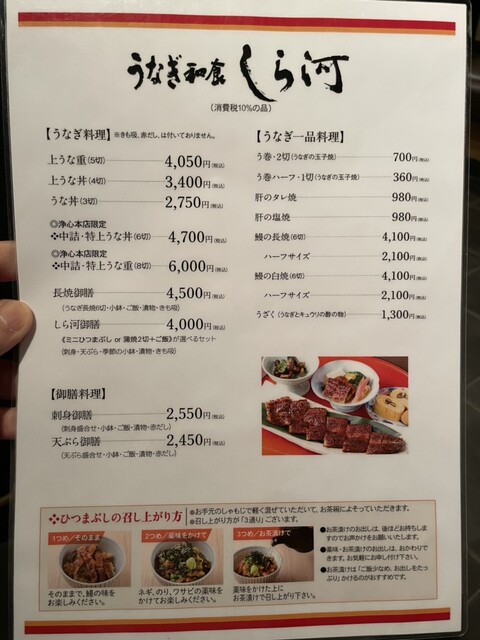 うなぎ和食 しら河
(消費税10%の品)
【うなぎ料理】※きも吸、赤だし、は付いておりません。
上うな重(5切) 4,050円(税込)
上うな丼(4切) 3,400円(税込)
うな丼(3切) 2,750円(税込)
◎浄心本店限定
❖中詰・特上うな丼(6切) 4,700円(税込)
◎浄心本店限定
❖中詰・特上うな重(8切) 6,000円(税込)
長焼御膳 4,500円(税込)
(うなぎ長焼6切・小鉢・ご飯・漬物・きも吸)
しら河御膳 4,000円(税込)
《ミニひつまぶし or 蒲焼2切+ご飯》が選べるセット
(刺身・天ぷら・季節の小鉢・漬物・きも吸)
【御膳料理】
刺身御膳 2,550円(税込)
(刺身盛合せ・小鉢・ご飯・漬物・赤だし)
天ぷら御膳 2,450円(税込)
(天ぷら盛合せ・小鉢・ご飯・漬物・赤だし)
【うなぎ一品料理】
う巻・2切(うなぎの玉子焼) 700円(税込)
う巻ハーフ・1切(うなぎの玉子焼) 360円(税込)
肝のタレ焼 980円(税込)
肝の塩焼 980円(税込)
鰻の長焼(6切) 4,100円(税込)
ハーフサイズ 2,100円(税込)
鰻の白焼(6切) 4,100円(税込)
ハーフサイズ 2,100円(税込)
うざく(うなぎとキュウリの酢の物) 1,300円(税込)
❖ひつまぶしの召し上がり方
❖お手元のしゃもじで軽く混ぜていただいて、お茶碗によそっていただきます。
❖召し上がり方が「3通り」ございます。
1つめ/そのまま
そのままで、鰻の味を
お楽しみください。
2つめ/薬味をかけて
ネギ、のり、ワサビの薬味を
かけてお楽しみください。
3つめ/お茶漬けで
薬味をかけた上に
お茶漬けで召し上がり下さい。
●お茶漬けのお出しは、後ほどお持ちしま
すのでお声かけをお願いいたします。
●薬味・お茶漬けのお出しは、おかわりで
きます。お気軽にお申し付け下さい。
●お茶漬けは「ご飯少なめ、お出しをたっ
ぷり」かけるのがおすすめです。